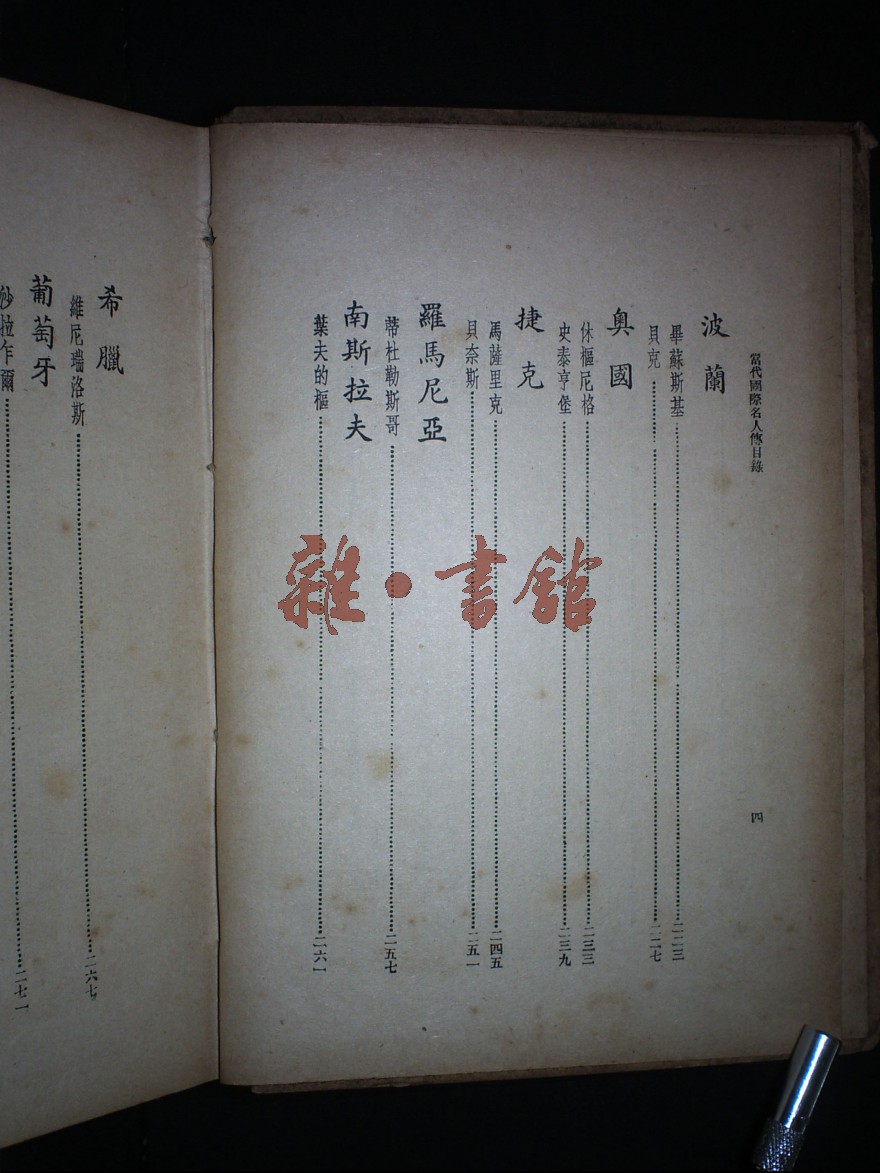 當代國際名人傳目錄
四
波蘭
畢蘇斯基……二二三
貝克……二二七
奥國
休樞尼格……二三三
史泰亨堡……二三九
捷克
馬薩里克……二四五
貝奈斯……二五一
羅馬尼亞
蒂杜勒斯哥……二五七
南斯拉夫
葉夫的樞……二六一
希臘
維尼瑞洛斯……二六七
葡萄牙
沙拉乍爾……二七一
雜·書館